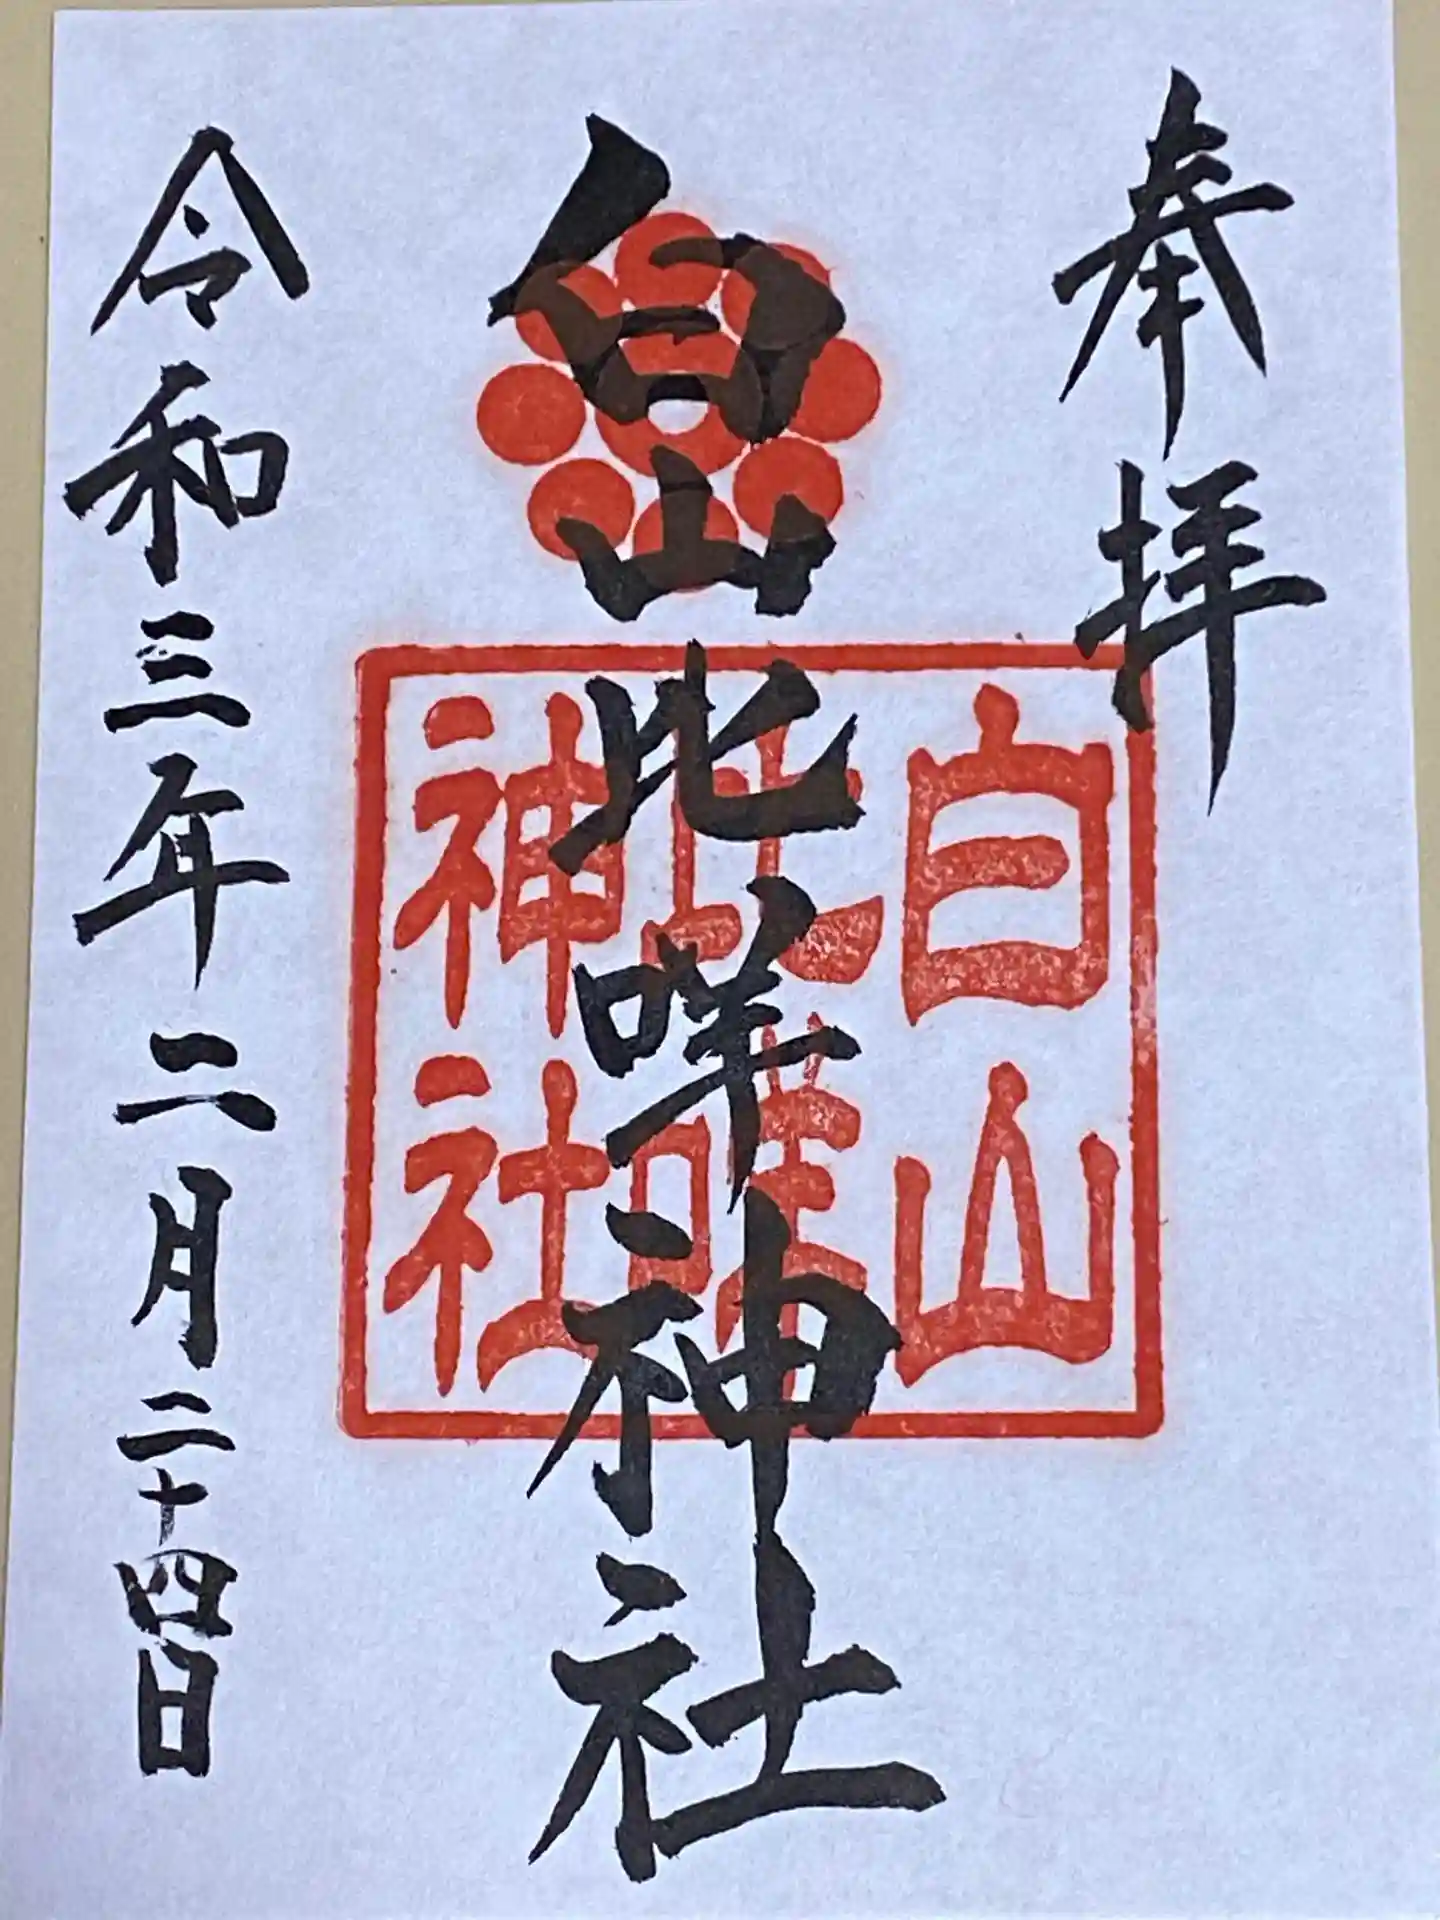 奉拝
白山比咩神社
白山
比咩
神社
令和三年二月二十四日